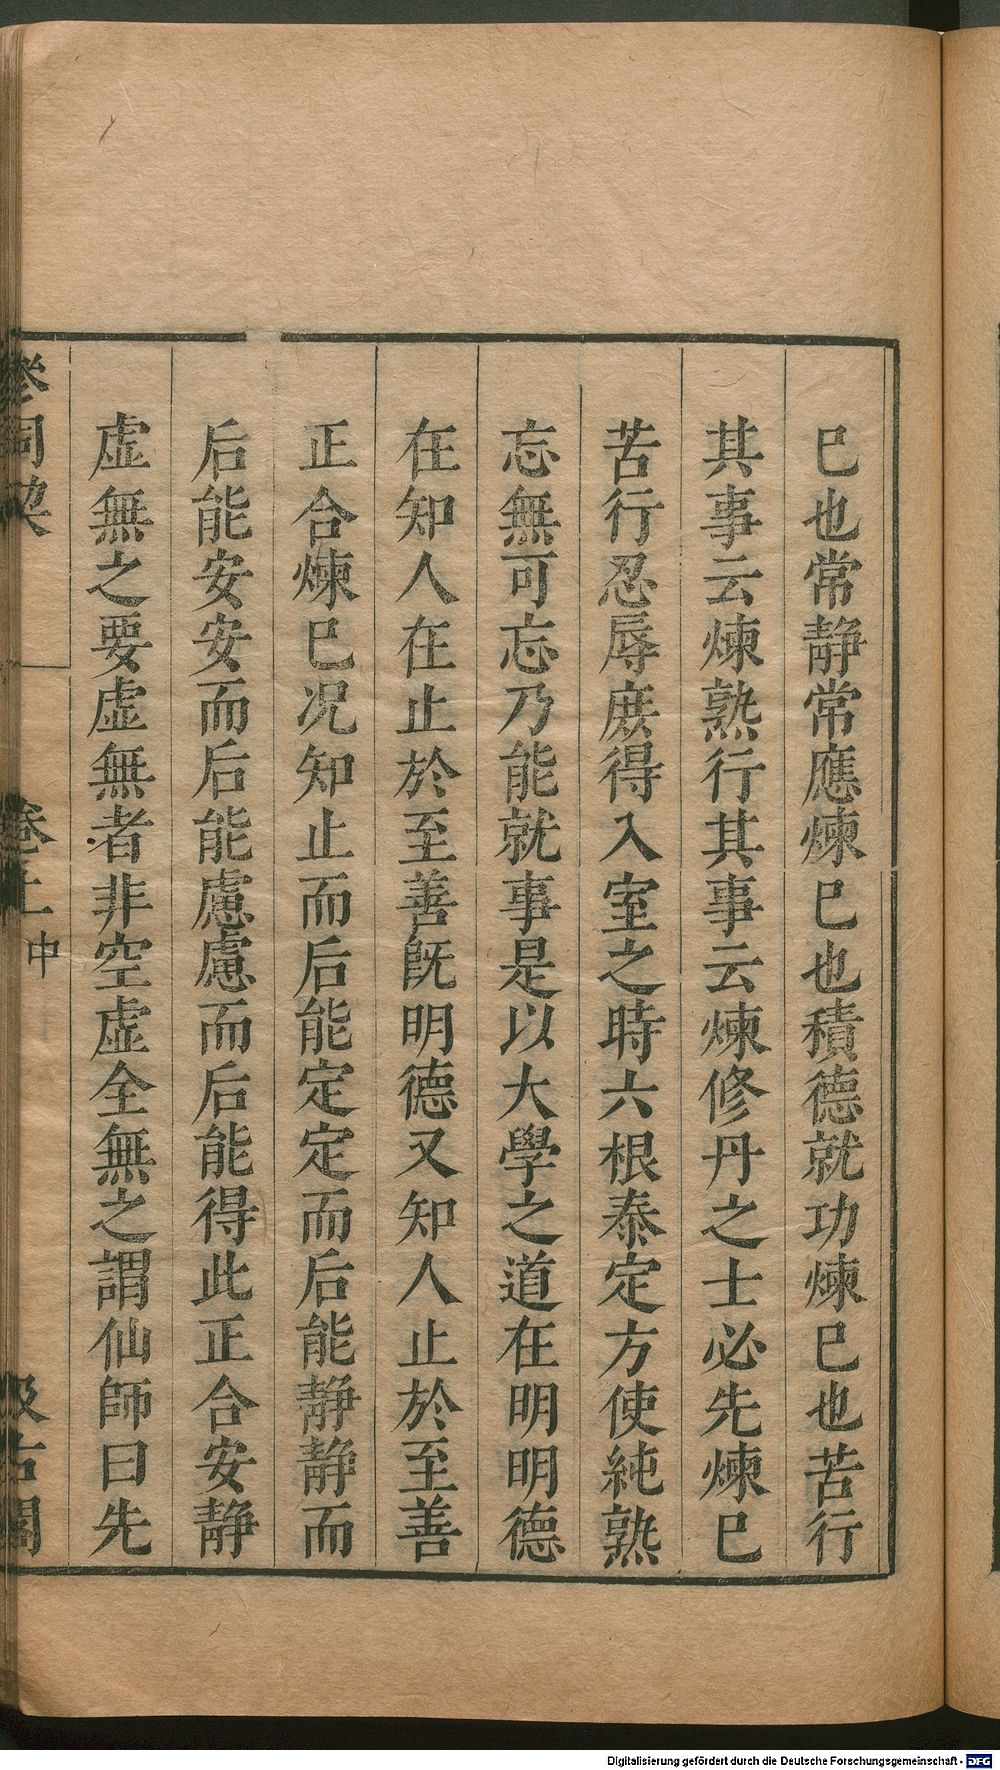 巳也常靜常應煉巳也積德就功煉巳也苦行
其事云煉熟行其事云煉修丹之士必先煉巳
苦行忍辱庻得入室之時六根泰定方使純熟
忘無可忘乃能就事是以大學之道在明明德
在知人在止於至善旣明德又知人止於至善
正合煉巳况知止而后能定定而后能靜靜而
后能安安而后能慮慮而后能得此正合安靜
虛無之要虛無者非空虛全無之謂仙師曰先
參同梁
卷上 中
汲古閣
Digitalisierung gefördert durch die Deutsche Forschungsgemeinschaft - DFG